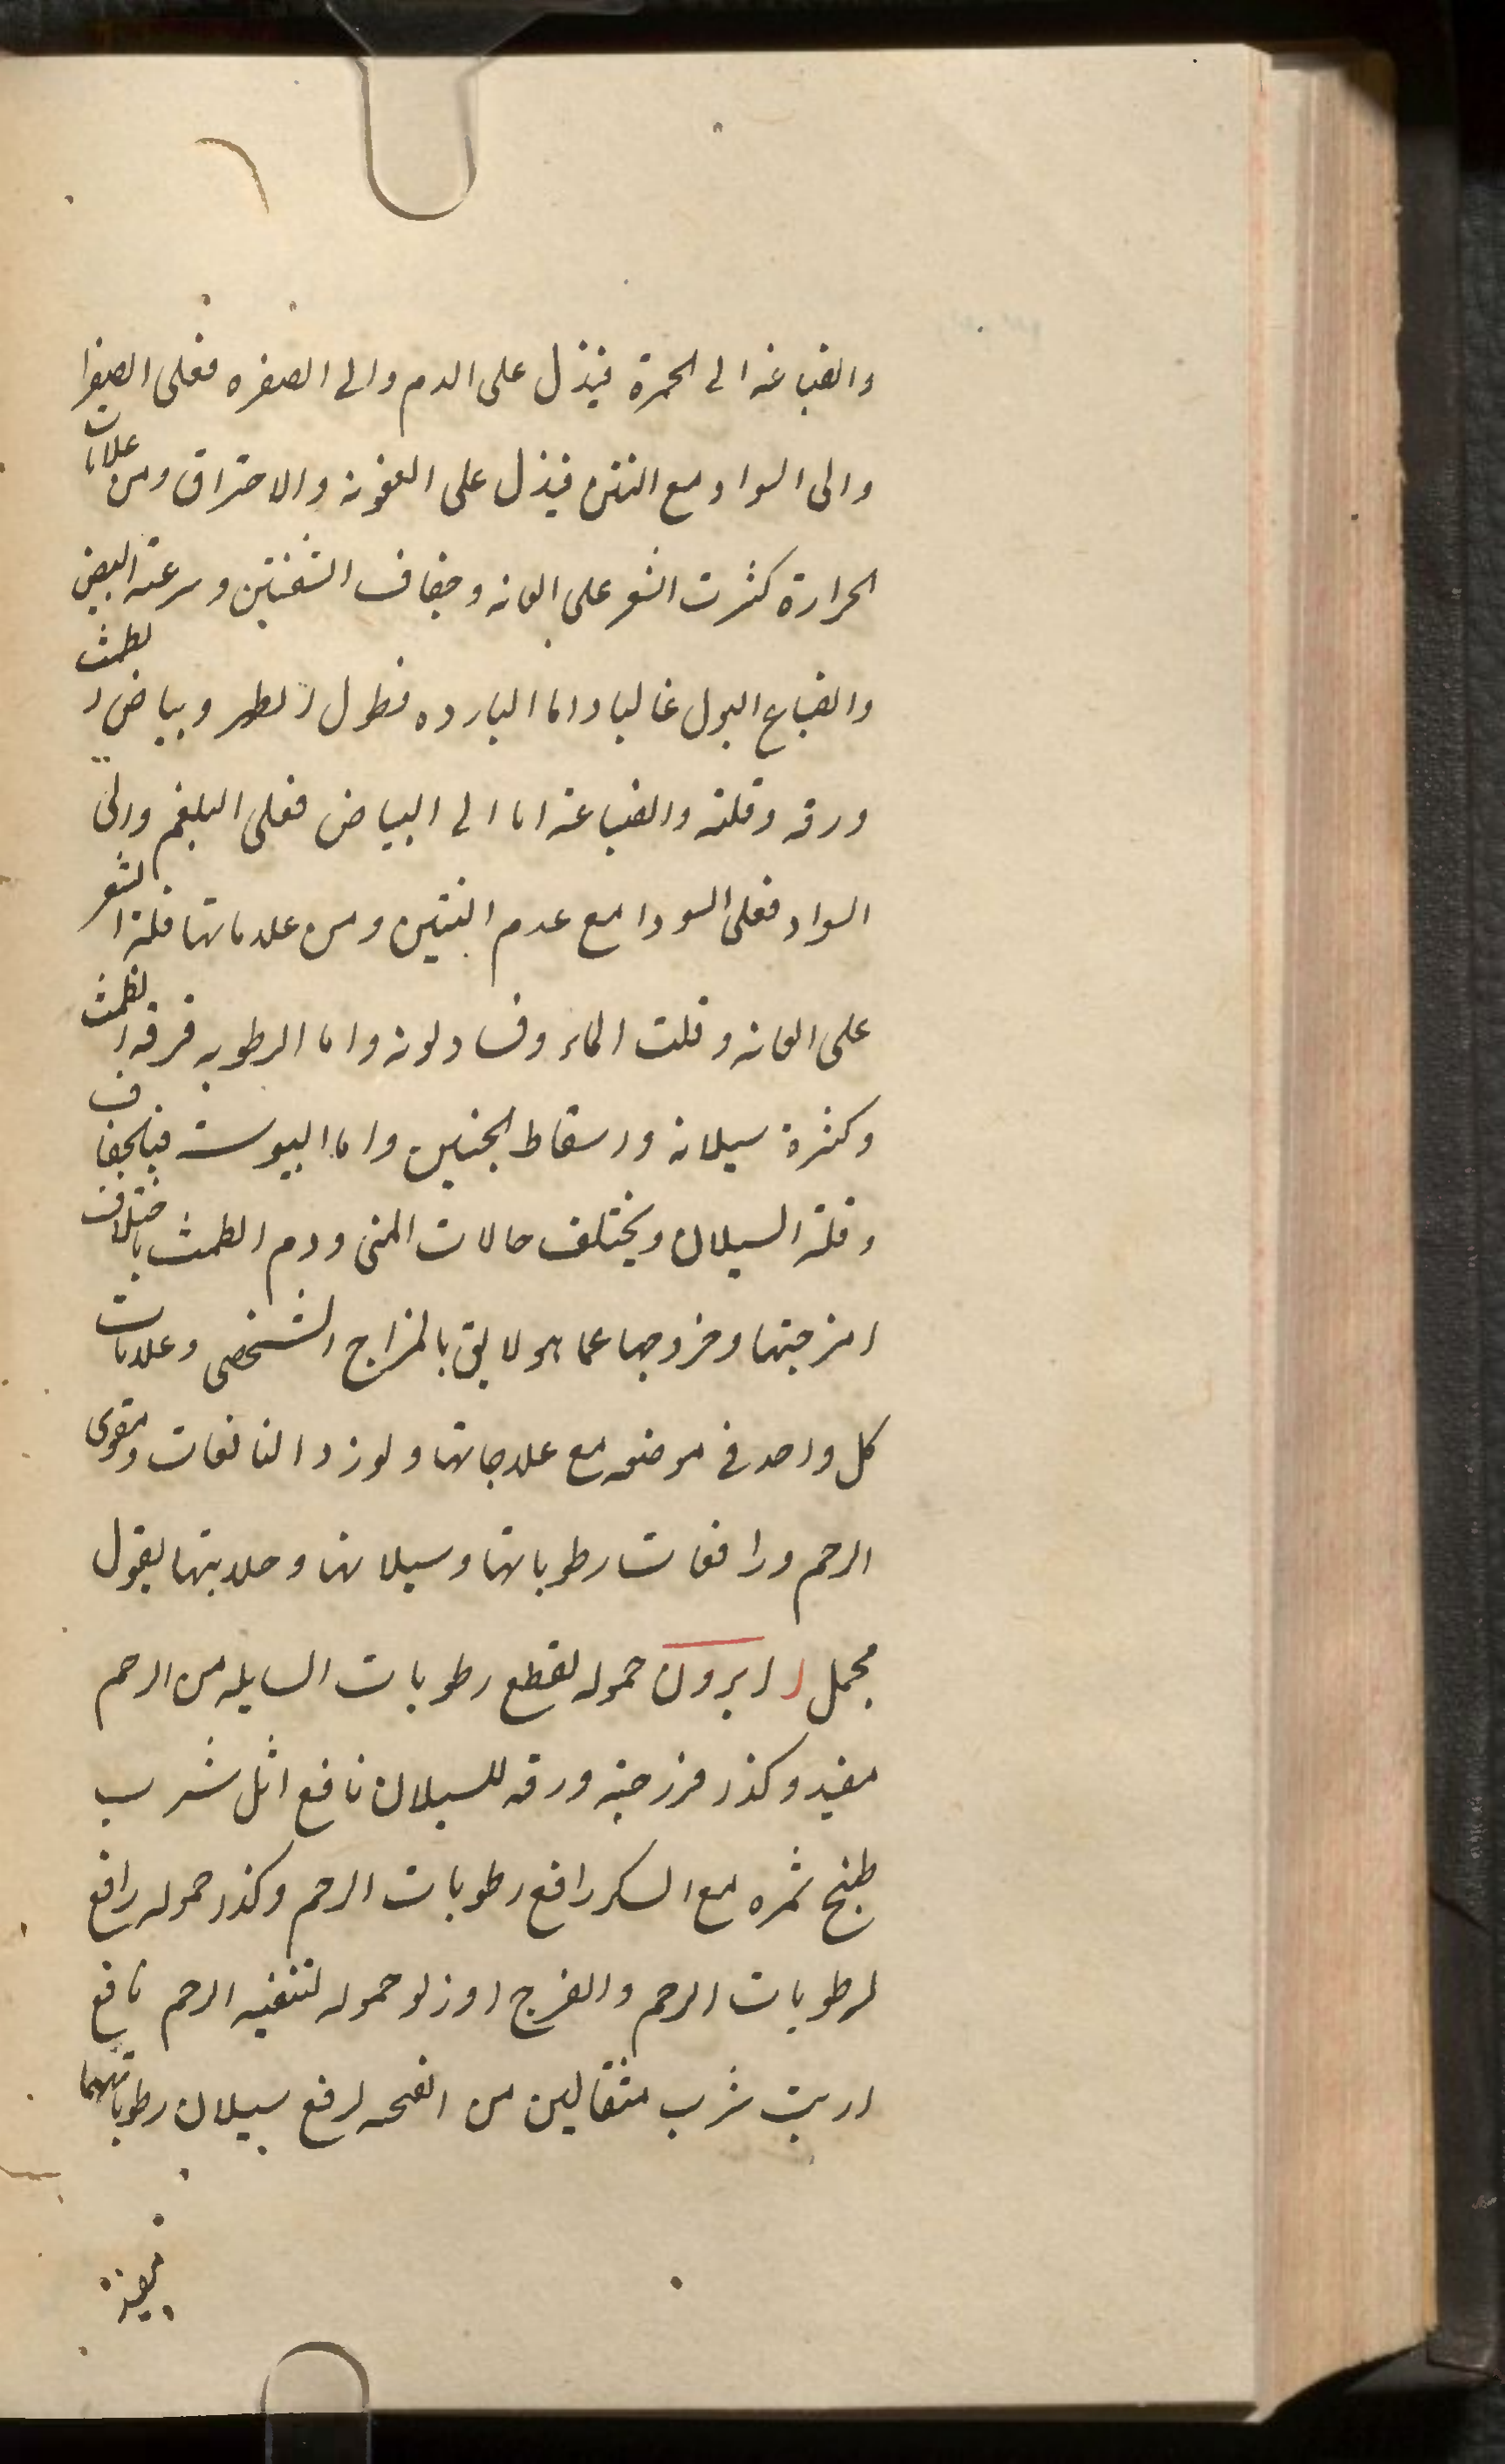 وانصباغه الى الحمرة فيدل على الدم والى الصفره فعلى الصفرا
والى السواد مع النتن فيدل على العفونه والاحتراق ومن علامات
الحرارة كثرت الشعر على العانه وجفاف الشفتين وسرعة النبض
وانصباغ البول غالبا واما البارده فطول الطهر وبياض الطمث
ورقه وقلته وانصباغه اما الى البياض فعلى البلغم والى
السواد فعلى السودا مع عدم النتن ومن علاماتها قلة الشعر
على العانه وقلت الماء وفساد لونه واما الرطوبه فرقه الطمث
وكثرة سيلانه واسقاط الجنين واما اليبوست فبالجفاف
وقلة السيلان ويختلف حالات المنى ودم الطمث باختلاف
امزجتها وخروجها عما هو لايق بالمزاج الشخصى وعلامات
كل واحد فى موضعه مع علاجاتها ولورد النافعات ومقوى
الرحم ورافعات رطوباتها وسيلانها وصلابتها بقول
مجمل ا ابرون حموله لقطع رطوبات السايله من الرحم
مفيد وكذا فرزجته ورقه للسيلان نافع اثل شرب
طبخ ثمره مع السكر رافع رطوبات الرحم وكذا حموله رافع
لرطوبات الرحم والفرج اوزلو حموله لتنقيه الرحم نافع
ارنب شرب مثقالين من انفحه لرفع سيلان رطوباتهما